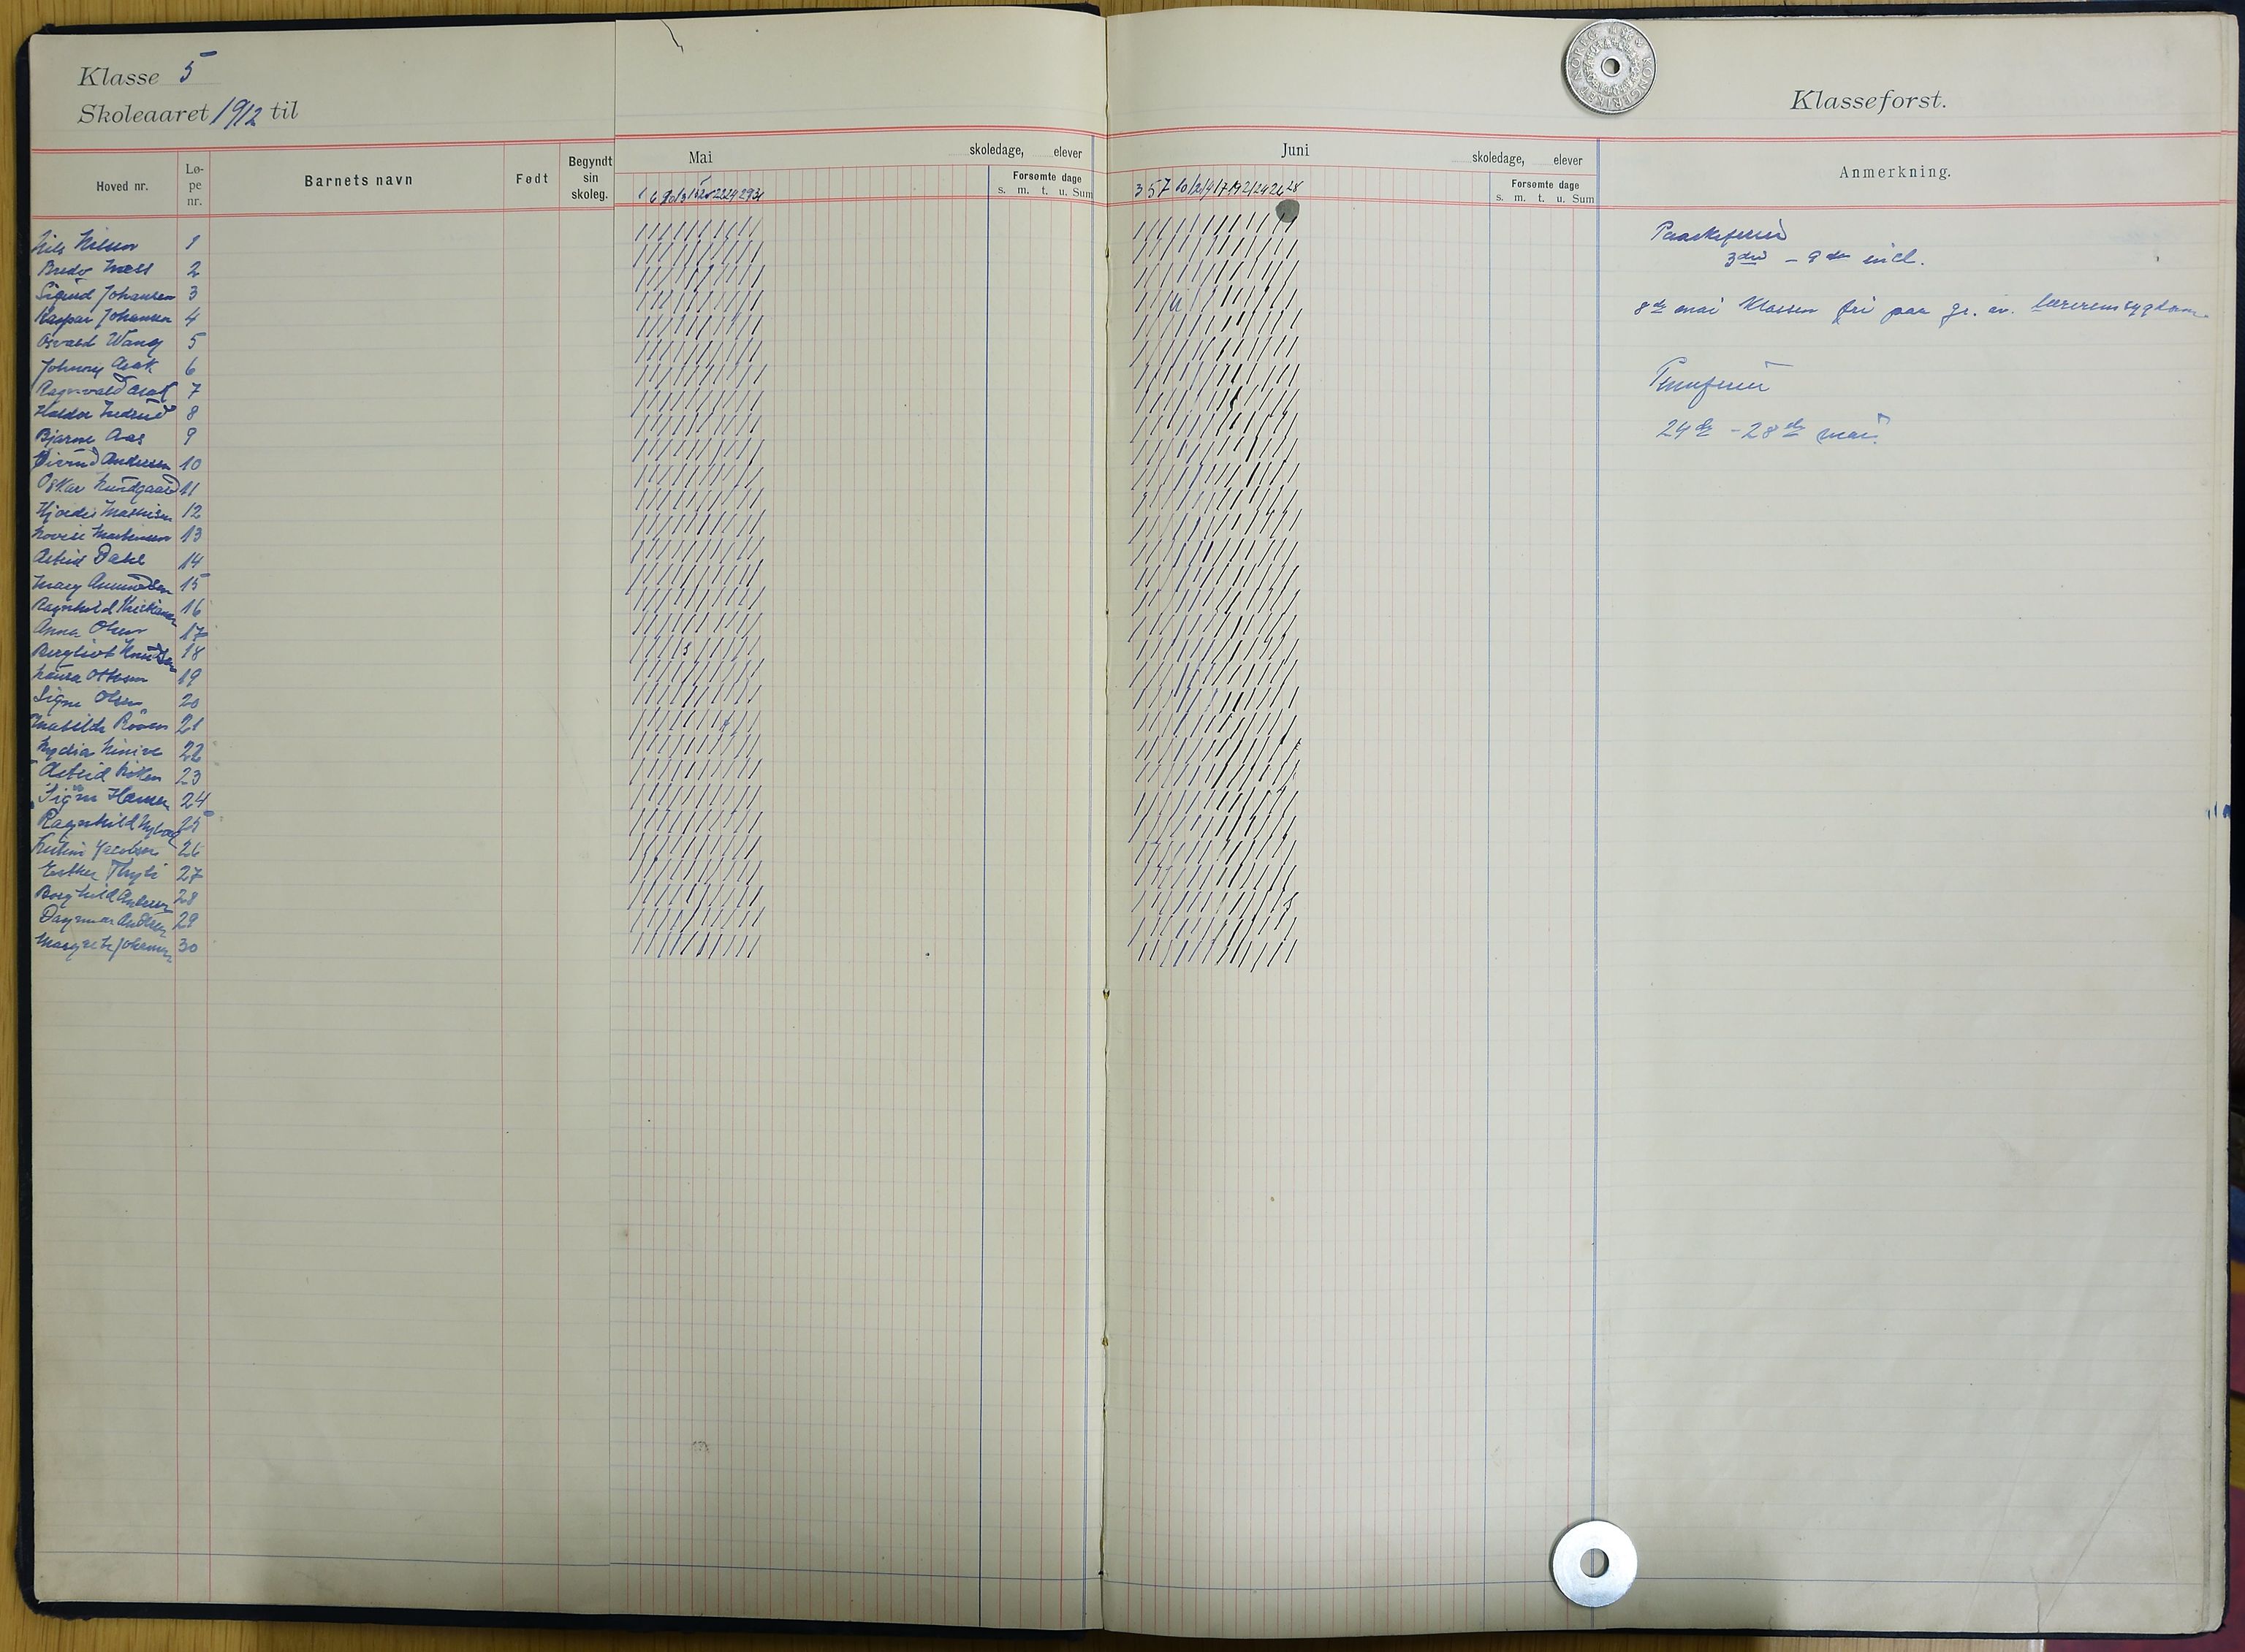 Klasse 5
Skoleaaret 1912 til
Klasseforst.
Hoved nr.
Lø-
pe
nr.
Barnets navn
Født
Begyndt
sin
skoleg.
Mai
skoledage, elever
Forsømte dage
s. m. t. u. Sum
Juni
skoledage, elever
Forsømte dage
s. m. t. u. Sum
Anmerkning.
1 6 13 15 20 22 24 29 31
3 5 7 10 12 14 17 19 21 24 26 28
Nils Nilsen 1
Bredo Næss 2
Sigurd Johansen 3
Kaspar Johansen 4
Osvald Wang 5
Johnny Asak 6
Ragnvald Asak 7
Haldor 8
Bjarne Aas 9
Øivind Andersen 10
Oskar Lundgaard 11
Hjørdis Mathisen 12
Lovise Martinsen 13
Astrid Dahl 14
Mary Amundsen 15
Ragnhild Kristiansen 16
Anna Olsen 17
Bergliot Knudsen 18
Laura Ottesen 19
Signe Olsen 20
Matilde Roåen 21
Lydia 22
Astrid 23
Signe Hansen 24
Ragnhild Nyborg 25
Jacobsen 26
Esther Thyli 27
Borghild Andersen 28
Dagmar Andersen 29
Margrete Johansen 30
Paaskeferie
3die - 9de incl.
8de mai Klassen fri paa gr. av. lærerens sygdom.
Pinseferie
24de - 28de mai.